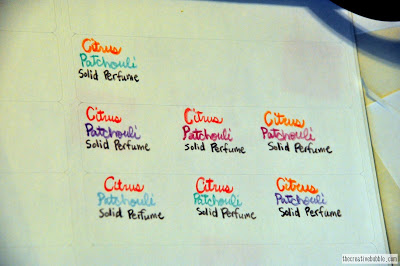 Citrus
Patchouli
Solid Perfume
Citrus
Patchouli
Solid Perfume
Citrus
Patchouli
Solid Perfume
Citrus
Patchouli
Solid Perfume
Citrus
Patchouli
Solid Perfume
Citrus
Patchouli
Solid Perfume
Citrus
Patchouli
Solid Perfume
thecreativebubble.com